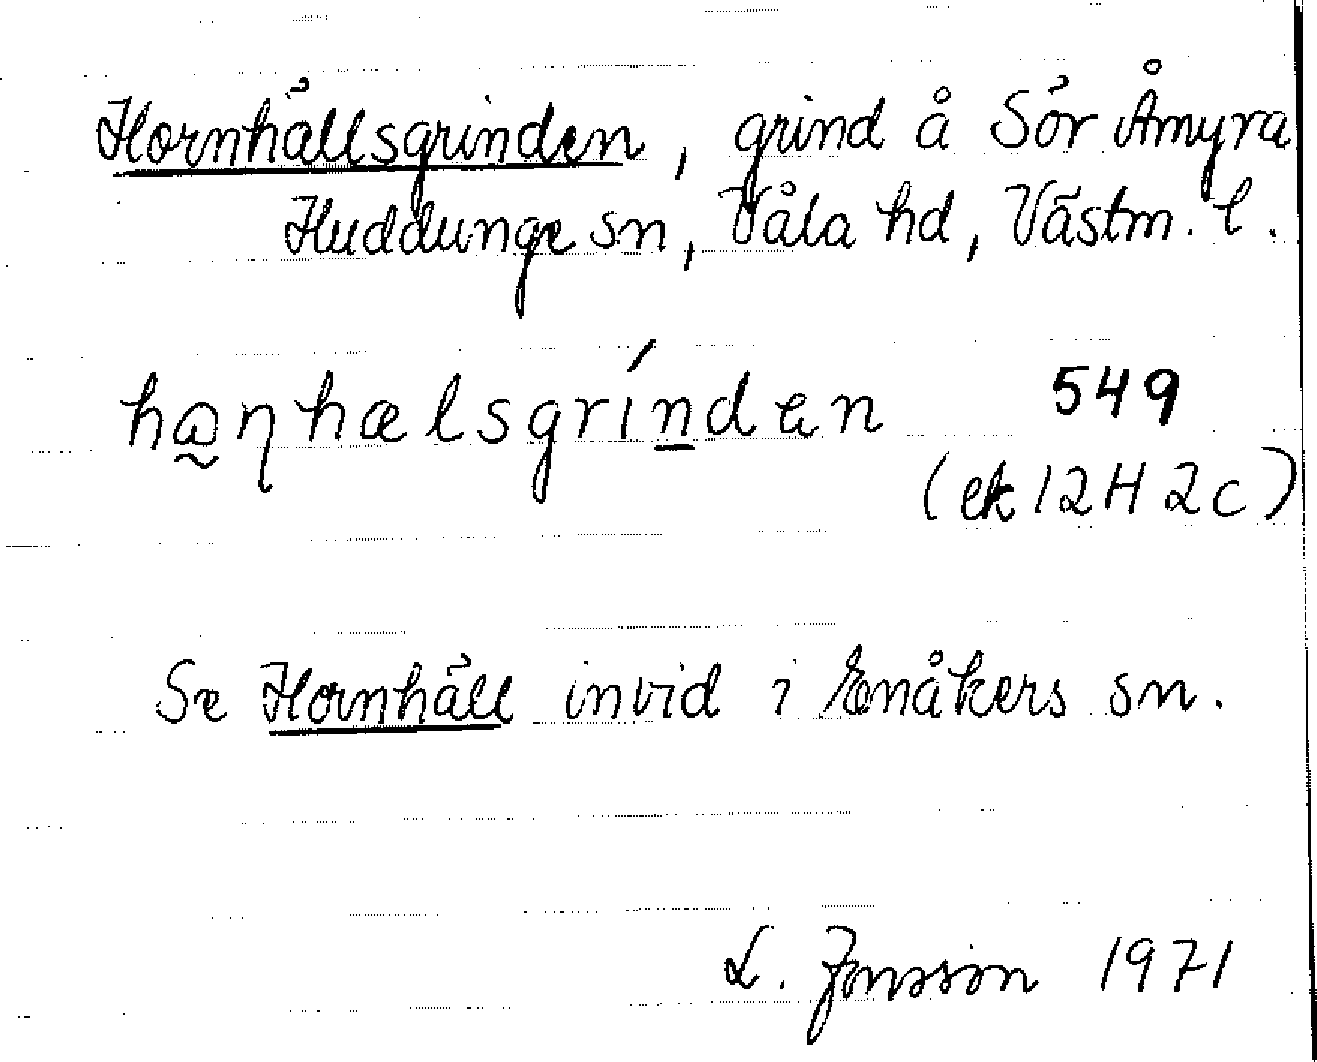 Hornhällsgrinden, grind å Sör Åmyra
Huddunge sn, Våla hd, Västm. l.
hanhælsgrinden 549
(ek 12H 2c)
Se Hornhäll invid i Enåkers sn.
L. Jonsson 1971